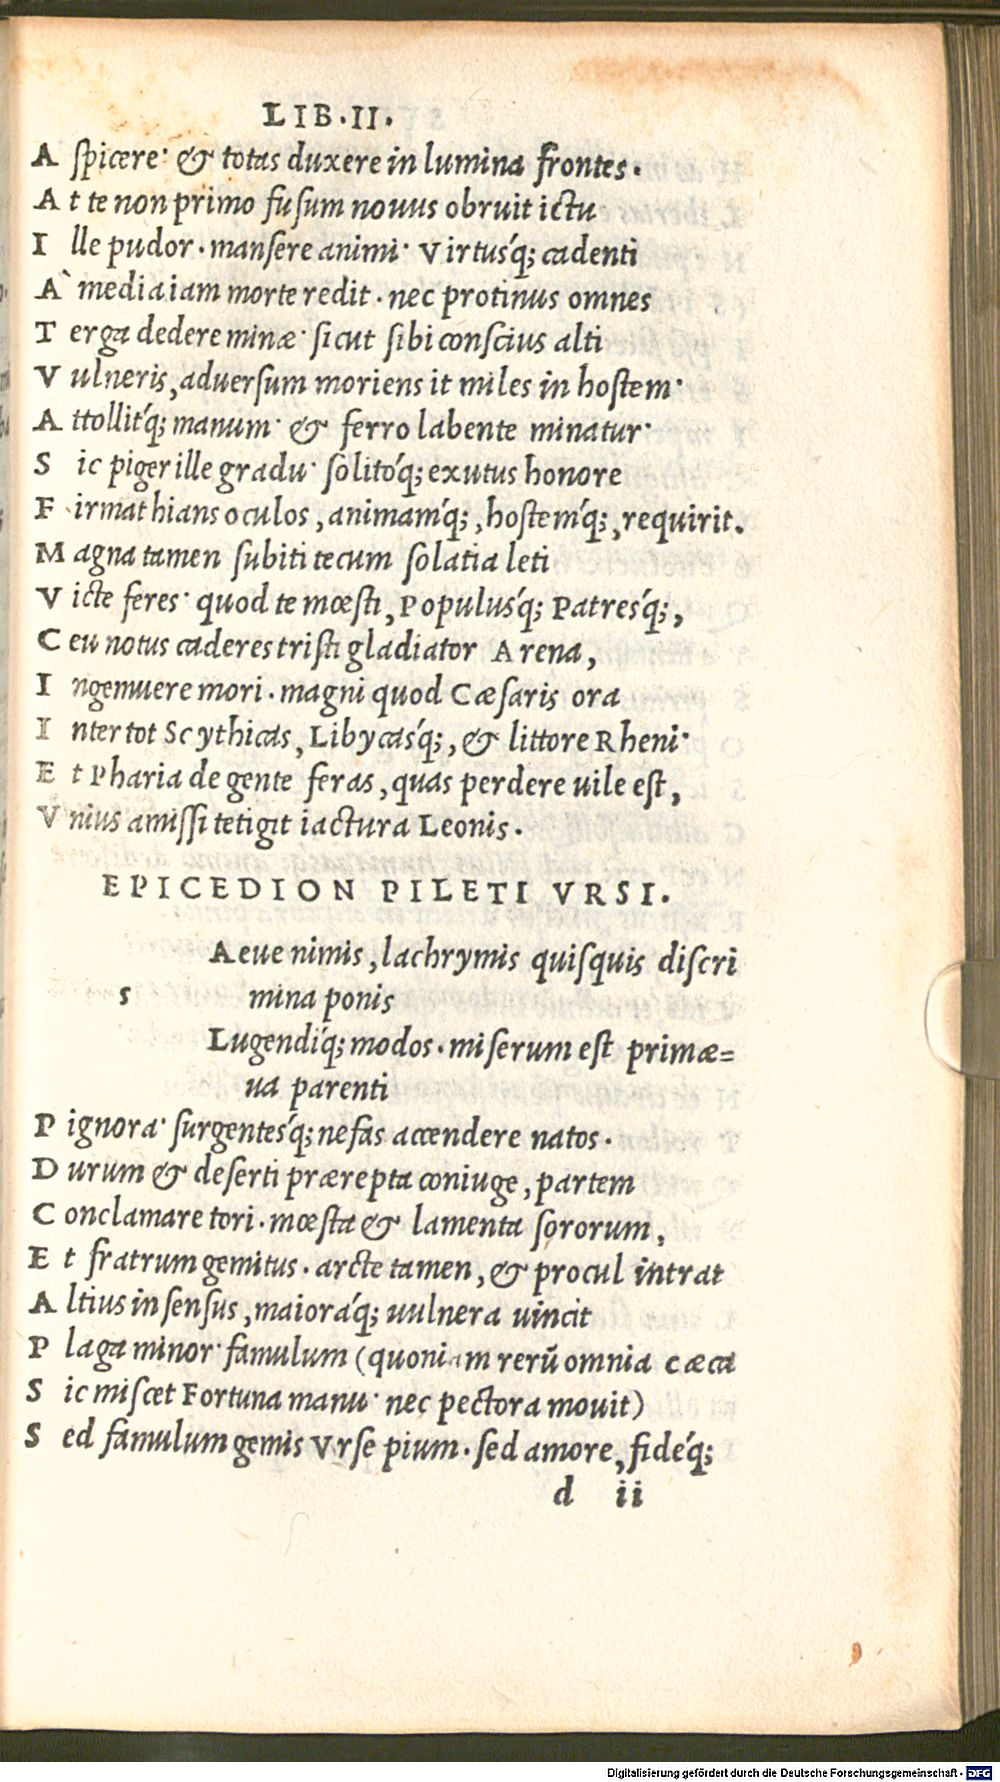 LIB.II.
A spicere· & totas duxere in lumina frontes.
A t te non primo fusum nouus obruit ictu
I lle pudor. mansere animi· Virtusq́; cadenti
A` media iam morte redit. nec protinus omnes
T erga dedere minæ· sicut sibi conscius alti
V ulneris, aduersum moriens it miles in hostem·
A ttollitq́; manum· & ferro labente minatur·
S ic piger ille gradu· solitoq́; exutus honore
F irmat hians oculos, animamq́;, hostemq́;, requirit.
M agna tamen subiti tecum solatia leti
V icte feres· quod te mœsti, Populusq́; Patresq́;,
C eu notus caderes tristi gladiator Arena,
I ngemuere mori. magni quod Cæsaris ora
I nter tot Scythicas, Libycasq́;, & littore Rheni·
E t Pharia de gente feras, quas perdere uile est,
V nius amissi tetigit iactura Leonis.
EPICEDION PILETI VRSI.
Aeue nimis, lachrymis quisquis discri
s mina ponis
Lugendiq́; modos. miserum est primæ=
ua parenti
P ignora· surgentesq́; nefas accendere natos.
D urum & deserti prærepta coniuge, partem
C onclamare tori. mœsta & lamenta sororum,
E t fratrum gemitus. arcte tamen, & procul intrat
A ltius in sensus, maioraq́; uulnera uincit
P laga minor· famulum (quoniam rerū omnia cæca
S ic miscet Fortuna manu· nec pectora mouit)
S ed famulum gemis Vrse pium. sed amore, fideq́;
d ii
Digitalisierung gefördert durch die Deutsche Forschungsgemeinschaft - DFG